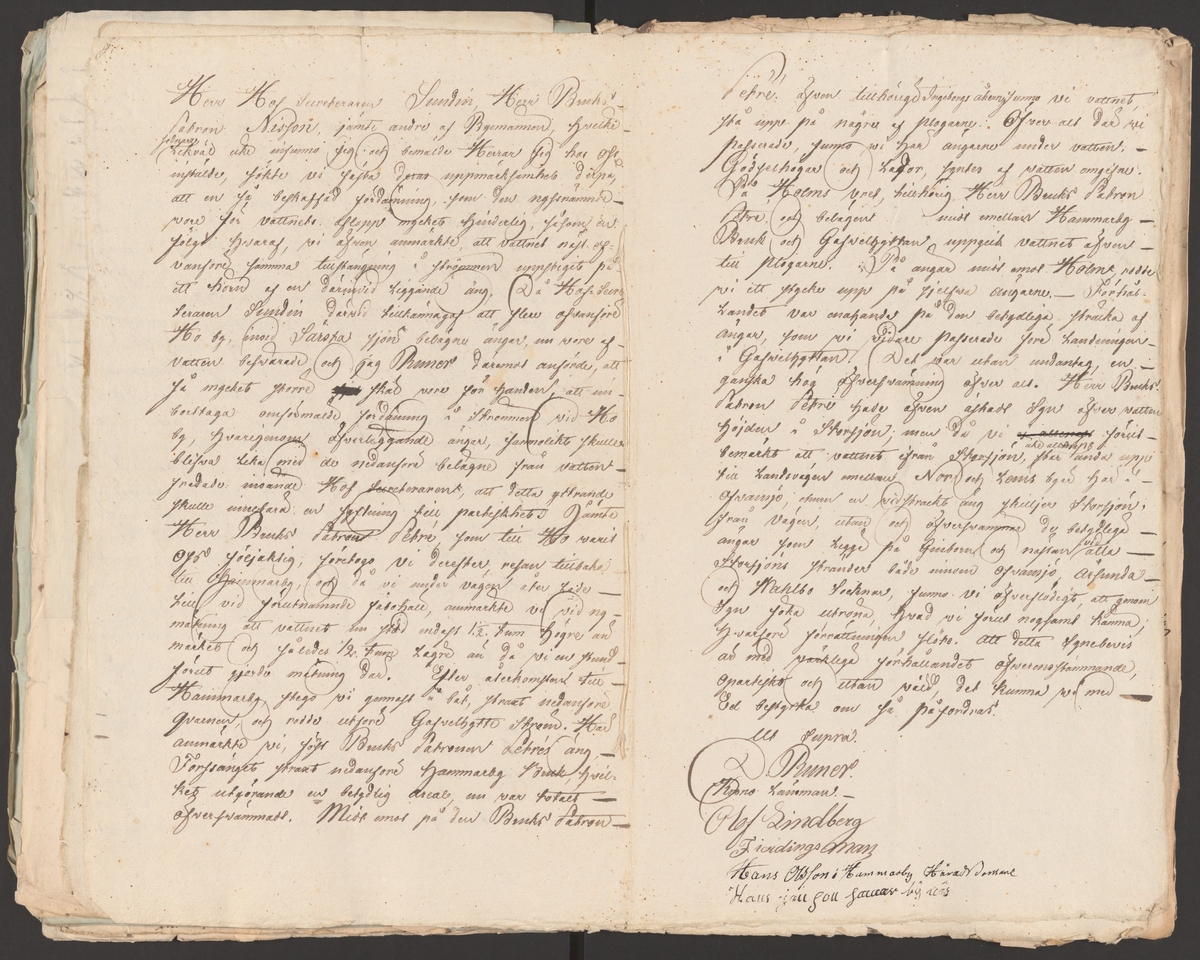 Herr Hof Secreteraren Sundin, Herr Bruks
Patron Nisson, jämte andre af Bymännen, hvilke
sedvare
likväl icke infunno sig och bemälde Herrar sig hos oss
instälde, sökte vi fästa deras uppmärksamhet derpå,
att en så beskaffad fördämning, som den nyssnämnde
vore för vattnets aflopp mycket hinderlig, såsom en
fölgd hvaraf, vi äfven anmärkte, att vattnet näst of-
vanföre samma tillstängning i strömmen uppstigit på
ett hörn af en därinvid liggande äng. Då Hof Secre
teraren Sundin därvid tillkännagaf att flere ofvanföre
Ho by, invid sjön belägne ängar, nu vore af
vatten besvärade och jag Runer däremot anförde, att
så mycket större skäl vore för handen, att un-
dertaga omförmälde fördämning i Strömmen vid Ho
by, hvarigenom öfverliggande ängar, sannolikt skulle
blifva lika med de nedanföre belägne från vatten
fredade; menade Hof Secreteraren, att detta yttrande
skulle innebära en syftning till partiskhet. Jämte
Herr Bruks Patron Petré, som till Ho warit
Oss följaktig, företogo vi derefter, resan tillbaka
till Hammarby, och då vi under vägen åter lade
till vid förutnämnde anmärkte vi vid ny
mätning att vattnet nu stod endast 1½ tum högre än
märket och således ½ tum lägre än då vi en stund
förut gjorde mätning där. Efter återkomsten till
Hammarby, stego vi genast i båt, straxt nedanföre
Qvarnen, och rodde utföre Gafvelhytte Ström. Här
anmärkte vi, först Bruks Patronen Petrés äng
Forssänget straxt nedanföre Hammarby Bruk, hvil-
ken utgörande en betydlig areal, nu var totalt
öfversvämmad. Midt emot på den Bruks Patron
Petré äfven tillhörige Ingeborgs åkern funno vi vattnet,
stå uppe på några af plogarne. Öfver alt där vi
passerade, funno vi här ängarne under vatten.
Gödselhögar och Lador, syntes af vatten omgifne.
På Holms vret, tillhörig Herr Bruks Patron
Petré och belägen midt emellan Hammarby
Bruk och Gafvelhyttan uppgick vattnet äfven
till plogarne. På ängar midt emot Holm, rodde
vi ett stycke upp på sjelfva ängarne. Förhål-
landet var enahanda på den betydliga sträcka af
ängar, som vi vidare passerade före landningen
i Gafvelhyttan. Det var utan undantag, en
ganska hög öfversvämning öfver alt. Herr Bruks
Patron Petré hade äfven äskat Syn öfver vatten
höjden i Storsjön; men då vi förut
bemärkt att vattnet ifrån Storsjön, står ända upp
till landsvägen emellan Nor och Lems byar här i
Ofvansjö, ehuru en vidsträckt äng skiljer Storsjön,
från vägen, utan och öfversvämmar de betydlige
ängar som ligga på Gnieborn och nästan vid alla
Storsjöns stränder både innom Ofvansjö, Årsunda
och Waldbo Socknar, funno vi öfverflödigt, att genom
Syn söka utröna, hvad vi förut nogsamt känna;
hvarföre förrättningen slöts. Att detta Synebevis
är med verkliga förhållandet öfverensstämmande,
opartiskt och utan våld, det kunna vi med
Ed bestyrka om så påfordras.
Ut Supra.
D Runer.
Krono Länsman.
Olof Lindberg
Fierdingsman
Hans Olsson i Hammarby Härads Domare
Hans